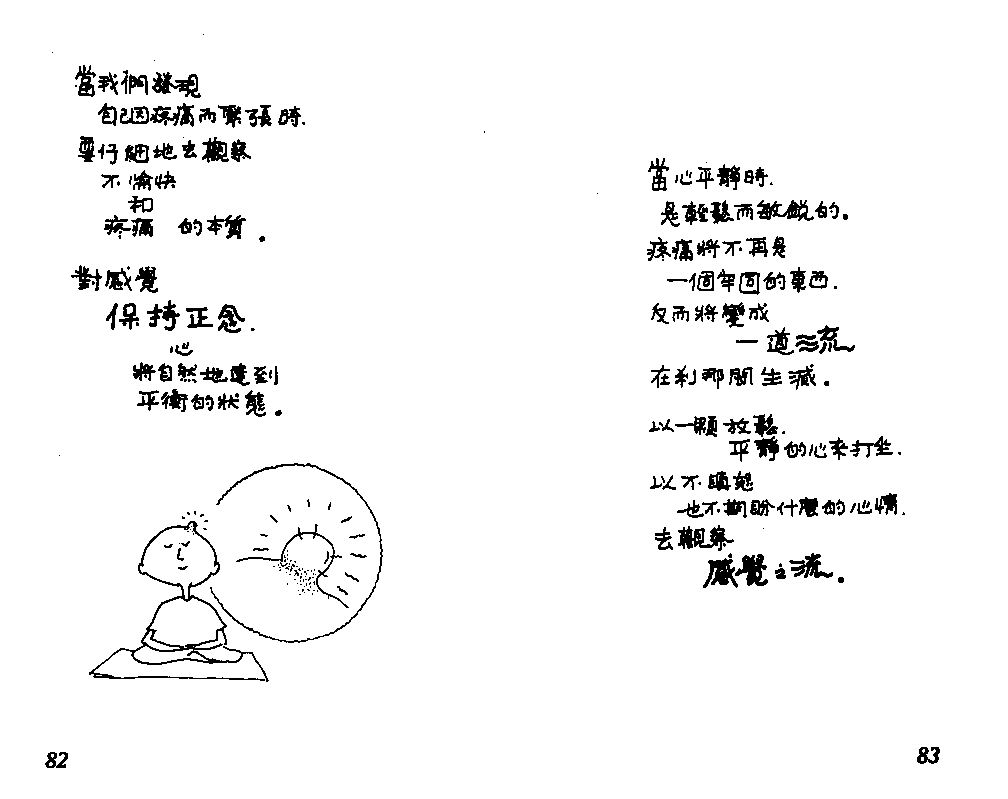 當我們發現
自己因疼痛而緊張時.
要仔細地去觀察
不愉快
和
疼痛 的本質。
對感覺
保持正念.
心
將自然地達到
平衡的狀態。
82
當心平靜時.
是輕鬆而敏銳的。
疼痛將不再是
一個牢固的東西.
反而將變成
一道流
在剎那間生滅。
以一顆放鬆.
平靜的心來打坐.
以不瞋怒
也不期盼什麼的心情.
去觀察
感覺之流。
83